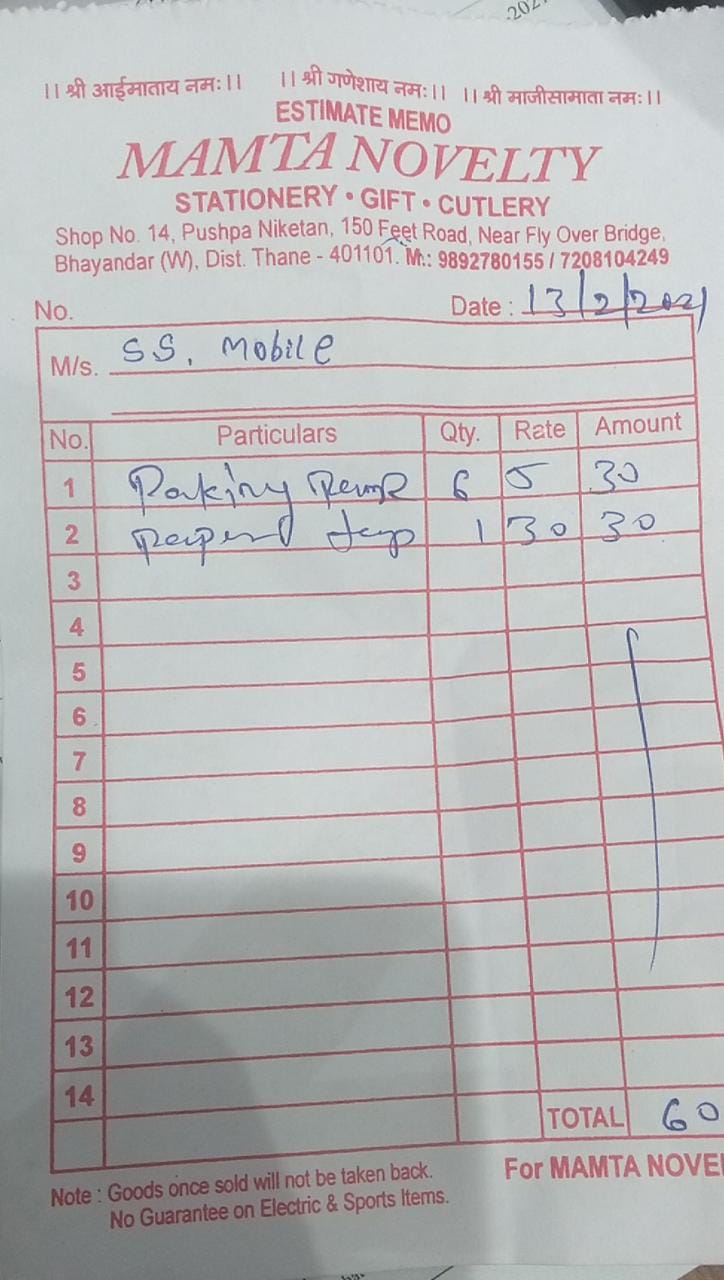 ।। श्री आईमाताय नमः ।। ।। श्री गणेशाय नमः ।। ।। श्री माजीसामाता नमः ।।
ESTIMATE MEMO
MAMTA NOVELTY
STATIONERY • GIFT • CUTLERY
Shop No. 14, Pushpa Niketan, 150 Feet Road, Near Fly Over Bridge,
Bhayandar (W), Dist. Thane - 401101. M.: 9892780155 / 7208104249
No. Date : 13/2/2021
M/s. SS. Mobile
No. Particulars Qty. Rate Amount
1 Paking 6 5 30
2 1 30 30
3
4
5
6
7
8
9
10
11
12
13
14
TOTAL 60
Note : Goods once sold will not be taken back. For MAMTA NOVE
No Guarantee on Electric & Sports Items.